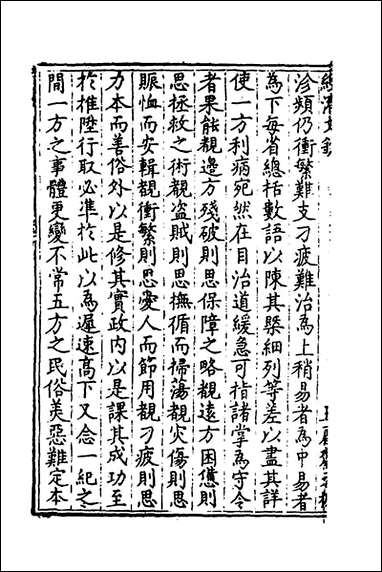 沴頻仍衝繁難支刁疲難治為上稍易者為中易者
為下每省總括數語以陳其槩細列等差以盡其詳
使一方利病宛然在目治道緩急可指諸掌為守令
者果能覩邊方殘破則思保障之略覩遠方困憊則
思拯救之術覩盗賊則思撫循而掃蕩覩灾傷則思
賑恤而安輯覩衝繁則思愛人而節用覩刁疲則思
力本而善俗外以是修其實政内以是課其成功至
於推陞行取必準於此以為遲速高下又念一紀之
間一方之事體更變不常五方之民俗美惡難定本